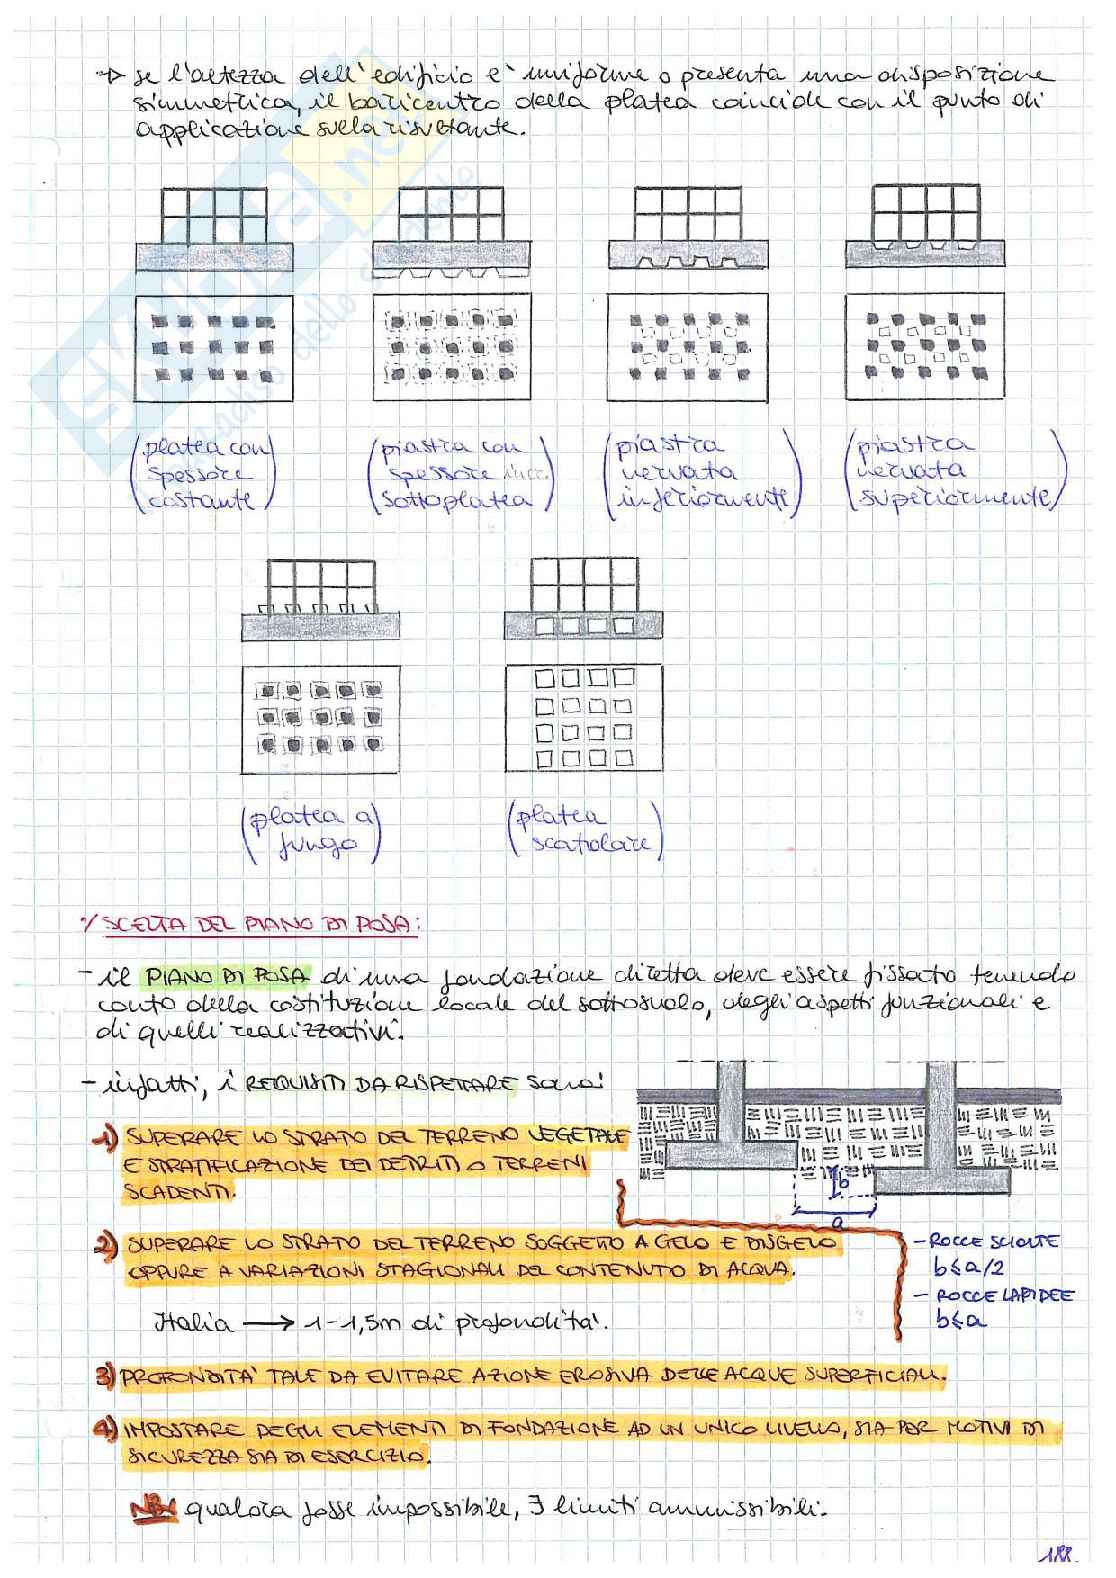 → se l'altezza dell'edificio è uniforme o presenta una disposizione
simmetrica, il baricentro della platea coincide con il punto di
applicazione sulla risultante.
(platea con
spessore
costante)
(piastra con
spessore incr.
sottoplatea)
(piastra
nervata
inferiormente)
(piastra
nervata
superiormente)
(platea a
fungo)
(platea
scatolare)
SCELTA DEL PIANO DI POSA:
- il PIANO DI POSA di una fondazione diretta deve essere fissato tenendo
conto della costituzione locale del sottosuolo, degli aspetti funzionali e
di quelli realizzativi.
- infatti, i REQUISITI DA RISPETTARE sono:
1) SUPERARE LO STRATO DEL TERRENO VEGETALE
E STRATIFICAZIONE DEI DETRITI O TERRENI
SCADENTI.
b
a
2) SUPERARE LO STRATO DEL TERRENO SOGGETTO A GELO E DISGELO
OPPURE A VARIAZIONI STAGIONALI DEL CONTENUTO DI ACQUA.
- ROCCE SCIOLTE
b≤a/2
- ROCCE LAPIDEE
b≤a
Italia → 1-1,5m di profondità.
3) PROFONDITA' TALE DA EVITARE AZIONE EROSIVA DELLE ACQUE SUPERFICIALI.
4) IMPOSTARE DEGLI ELEMENTI DI FONDAZIONE AD UN UNICO LIVELLO, SIA PER MOTIVI DI
SICUREZZA SIA DI ESERCIZIO.
NB: qualora fosse impossibile, ∃ limiti ammissibili.
188.